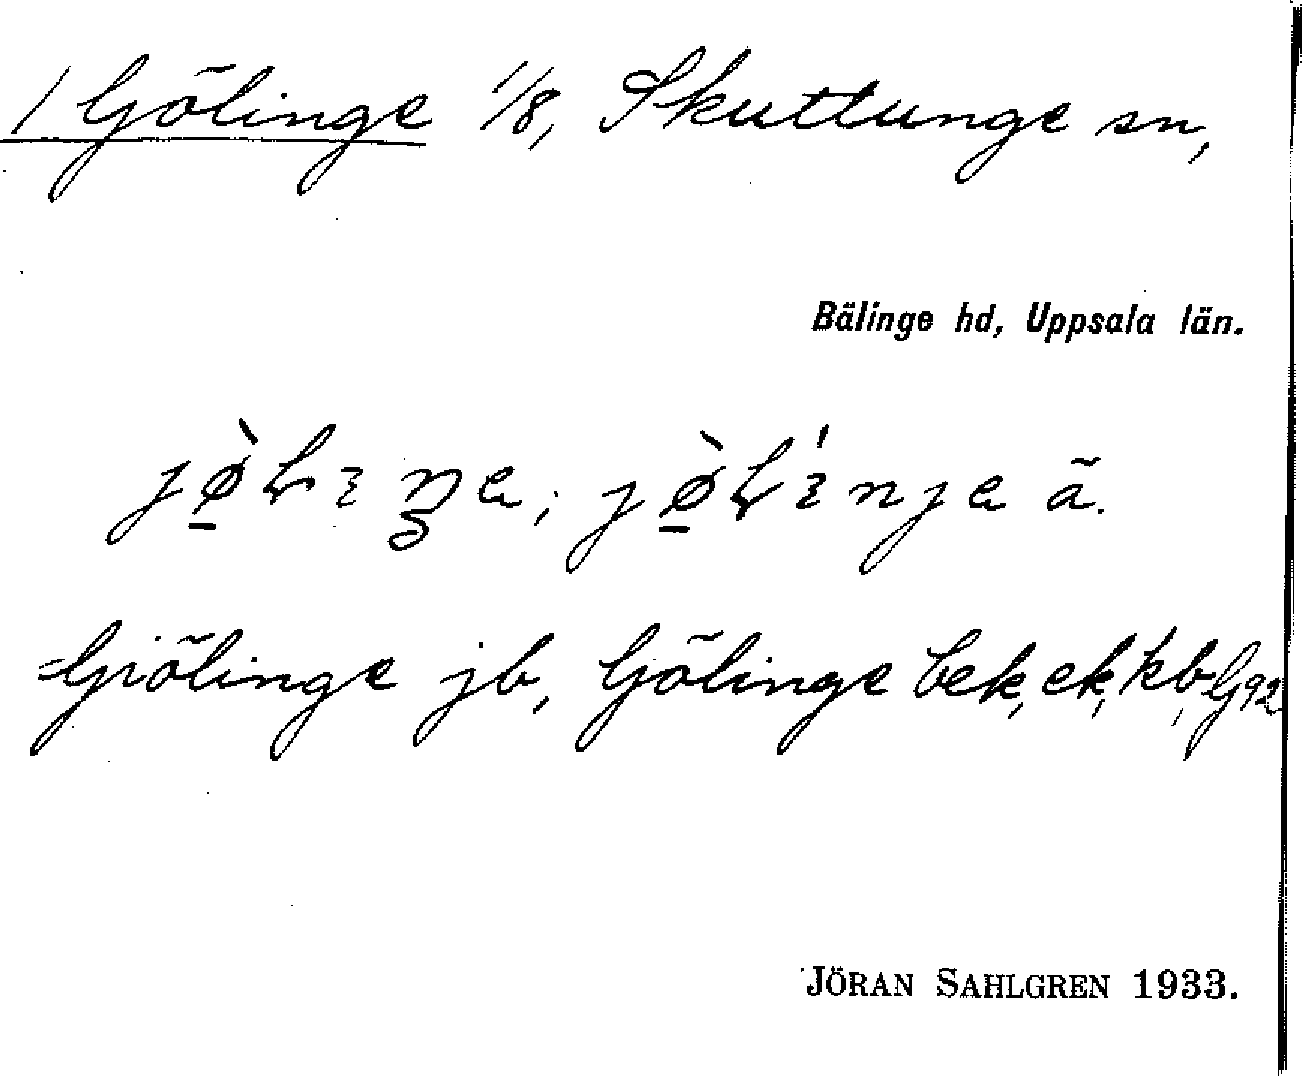 / Gölinge 1/8, Skuttunge sn,
Bälinge hd, Uppsala län.
Giölinge jb, Gölinge bek, ek, kb, G92
JÖRAN SAHLGREN 1933.